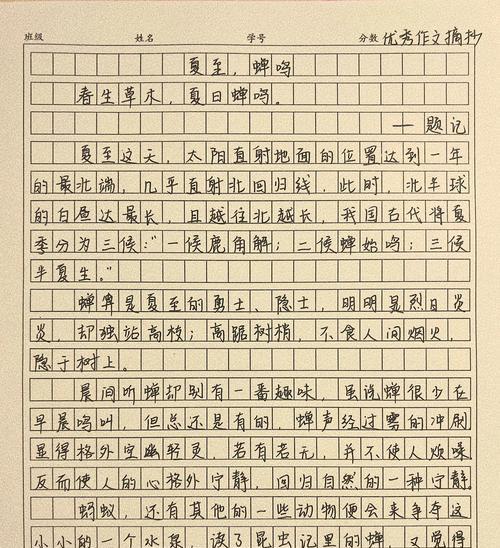 班级 姓名 学号 分数 优秀作文摘抄
夏至，蝉鸣
春生草木，夏日蝉鸣。
——题记
夏至这天，太阳直射地面的位置达到一年
的最北端，几乎直射北回归线，此时，北半球
的白昼达最长，且越往北越长，我国古代将夏
季分为三候："一候鹿角解；二候蝉始鸣；三候
半夏生。"
蝉算是夏至的勇士、隐士，明明是烈日炎
炎，却独站高枝；高踞树梢，不食人间烟火，
隐于树上。
晨间听蝉却别有一番趣味，虽说蝉很少在
早晨鸣叫，但总还是有的，蝉声经过雾的冲刷
显得格外空幽轻灵，若有若无，并不使人烦噪
反而使人的心格外宁静，回归自然的一种宁静。
蚂蚁，还有其他的一些动物便会来争夺这
小小的一个水泉，读了昆虫记里的蝉，又觉得